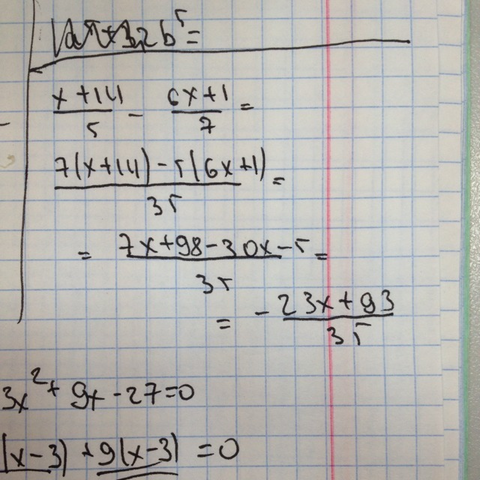 x+14/5 - 6x+1/7 =
7(x+14)-5(6x+1)/35 =
= 7x+98-30x-5/35 =
= -23x+93/35
3x²+9x-27=0
(x-3)+9(x-3)=0